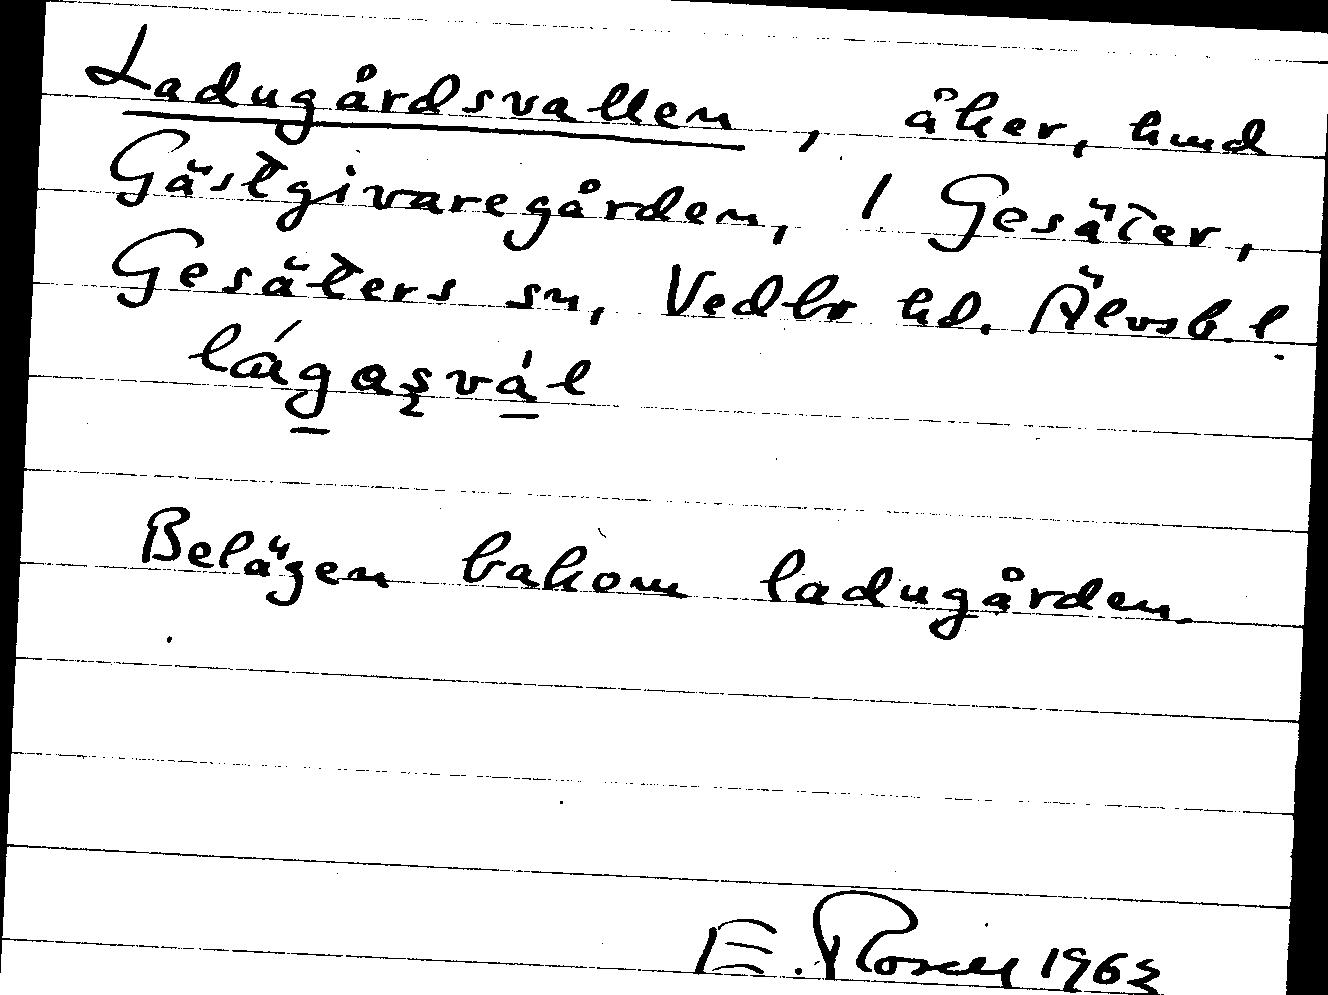 Ladugårdsvallen, åker, hmd
Gästgivaregården, 1 Gesäter,
Gesäters sn, Vedbo hd. Älvsb. l.
lágasvál
Belägen bakom ladugården.
E. Rosell 1963